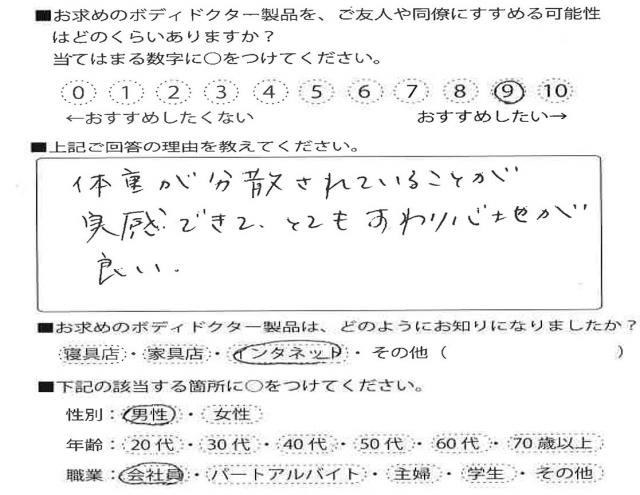 ■お求めのボディドクター製品を、ご友人や同僚にすすめる可能性
はどのくらいありますか？
当てはまる数字に○をつけてください。
0 1 2 3 4 5 6 7 8 9 10
←おすすめしたくない おすすめしたい→
■上記ご回答の理由を教えてください。
体重が分散されていることが
実感できて、とてもすわり心地が
良い.
■お求めのボディドクター製品は、どのようにお知りになりましたか？
寝具店・家具店・インタネット・その他（ ）
■下記の該当する箇所に○をつけてください。
性別：男性・女性
年齢：20代・30代・40代・50代・60代・70歳以上
職業：会社員・パートアルバイト・主婦・学生・その他